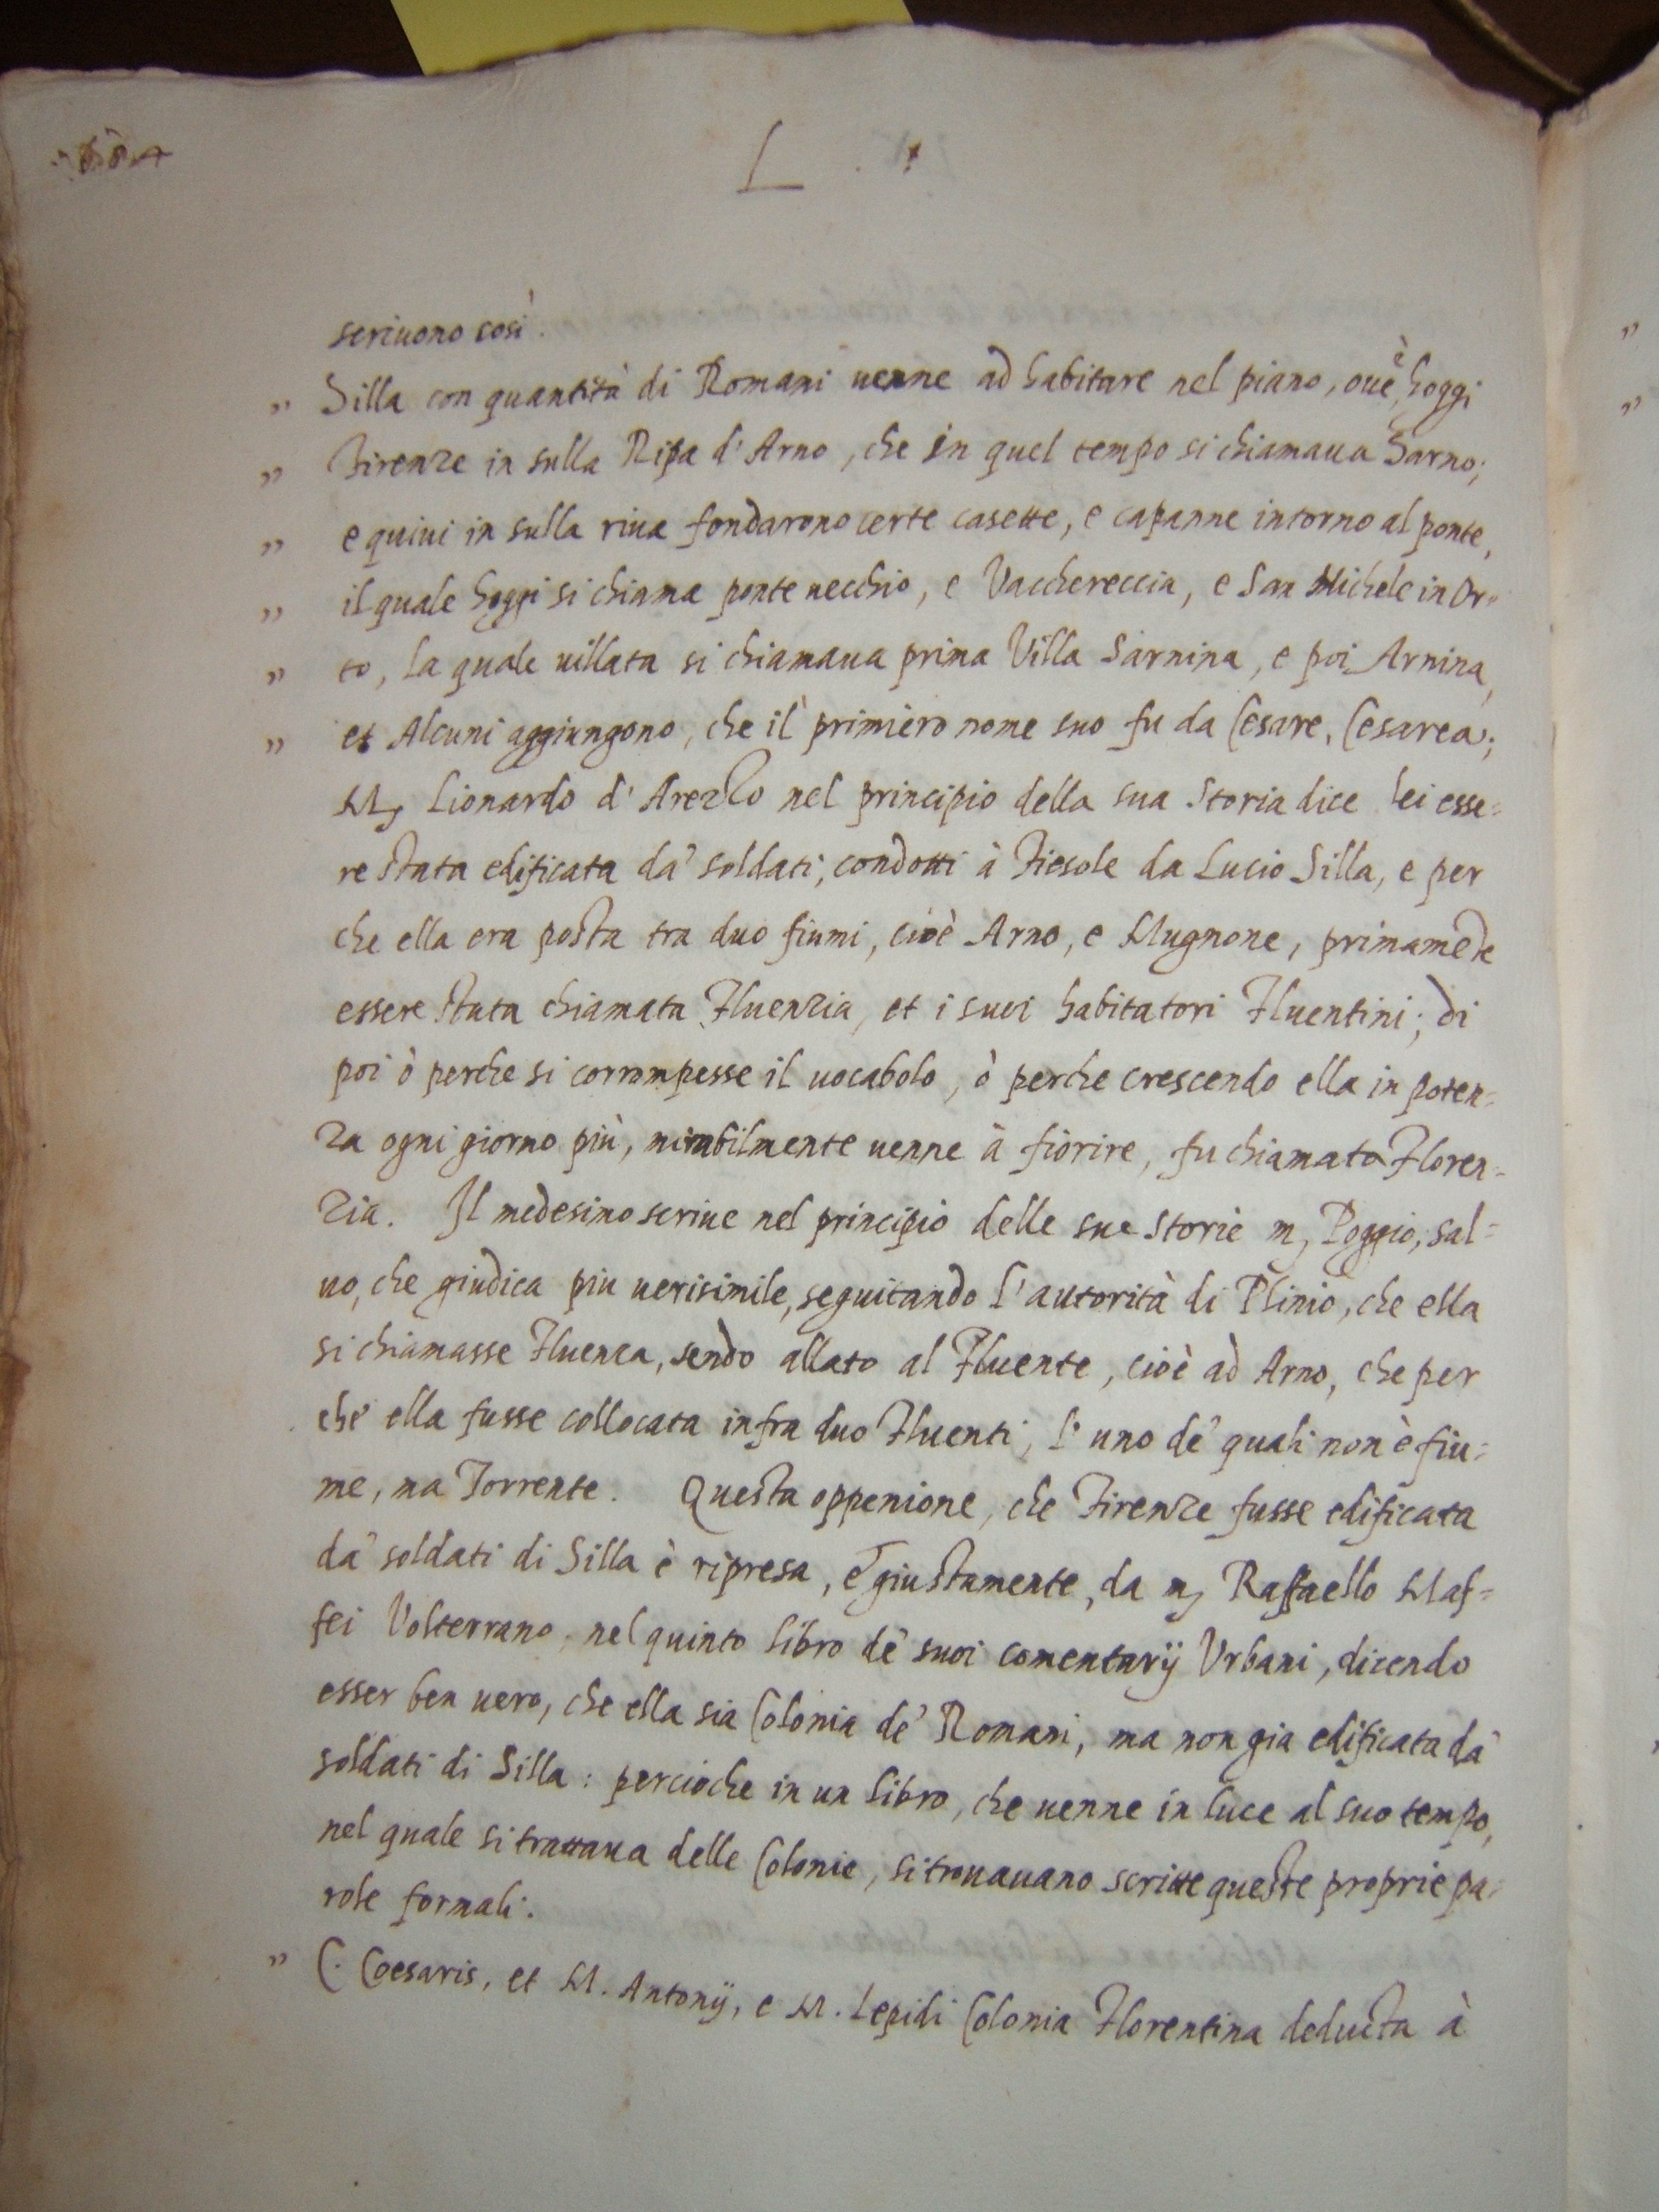 L .
scriuono così.
„ Silla con quantità di Romani uenne ad habitare nel piano, oue è hoggi
„ Firenze in sulla Ripa d'Arno, che in quel tempo si chiamaua Sarno;
„ e quiui in sulla riua fondarono certe casette, e capanne intorno al ponte,
„ il quale hoggi si chiama ponte uecchio, e Vacchereccia, e San Michele in Or=
„ to, la quale uillata si chiamaua prima Villa Sarnina, e poi Arnina,
„ et Alcuni aggiungono, che il primiero nome suo fu da Cesare, Cesarea;
M, Lionardo d'Arezzo nel principio della sua Storia dice lei esse=
re stata edificata da' soldati, condotti à Fiesole da Lucio Silla, e per
che ella era posta tra duo fiumi, cioè Arno, e Mugnone, primamẽte
essere stata chiamata Fluenzia, et i suoi habitatori Fluentini; di
poi ò perche si corrompesse il uocabolo, ò perche crescendo ella in poten=
za ogni giorno più, mirabilmente uenne à fiorire, fu chiamata Floren=
zia. Il medesimo scriue nel principio delle sue storie m, Poggio, sal=
uo, che giudica piu uerisimile, seguitando l'autorità di Plinio, che ella
si chiamasse Fluenza, sendo allato al Fluente, cioè ad Arno, che per
che ella fusse collocata infra duo Fluenti, l'uno de' quali non è fiu=
me, ma Torrente. Questa oppenione, che Firenze fusse edificata
da' soldati di Silla è ripresa, e giustamente, da m, Raffaello Maf=
fei Volterrano, nel quinto libro de' suoi comentarij Vrbani, dicendo
esser ben uero, che ella sia Colonia de' Romani, ma non gia edificata da'
soldati di Silla: percioche in un libro, che uenne in luce al suo tempo,
nel quale si trattaua delle Colonie, si trouauano scritte queste proprie pa=
role formali.
„ C. Coesaris, et M. Antonij, e M. Lepidi Colonia Florentina deducta à